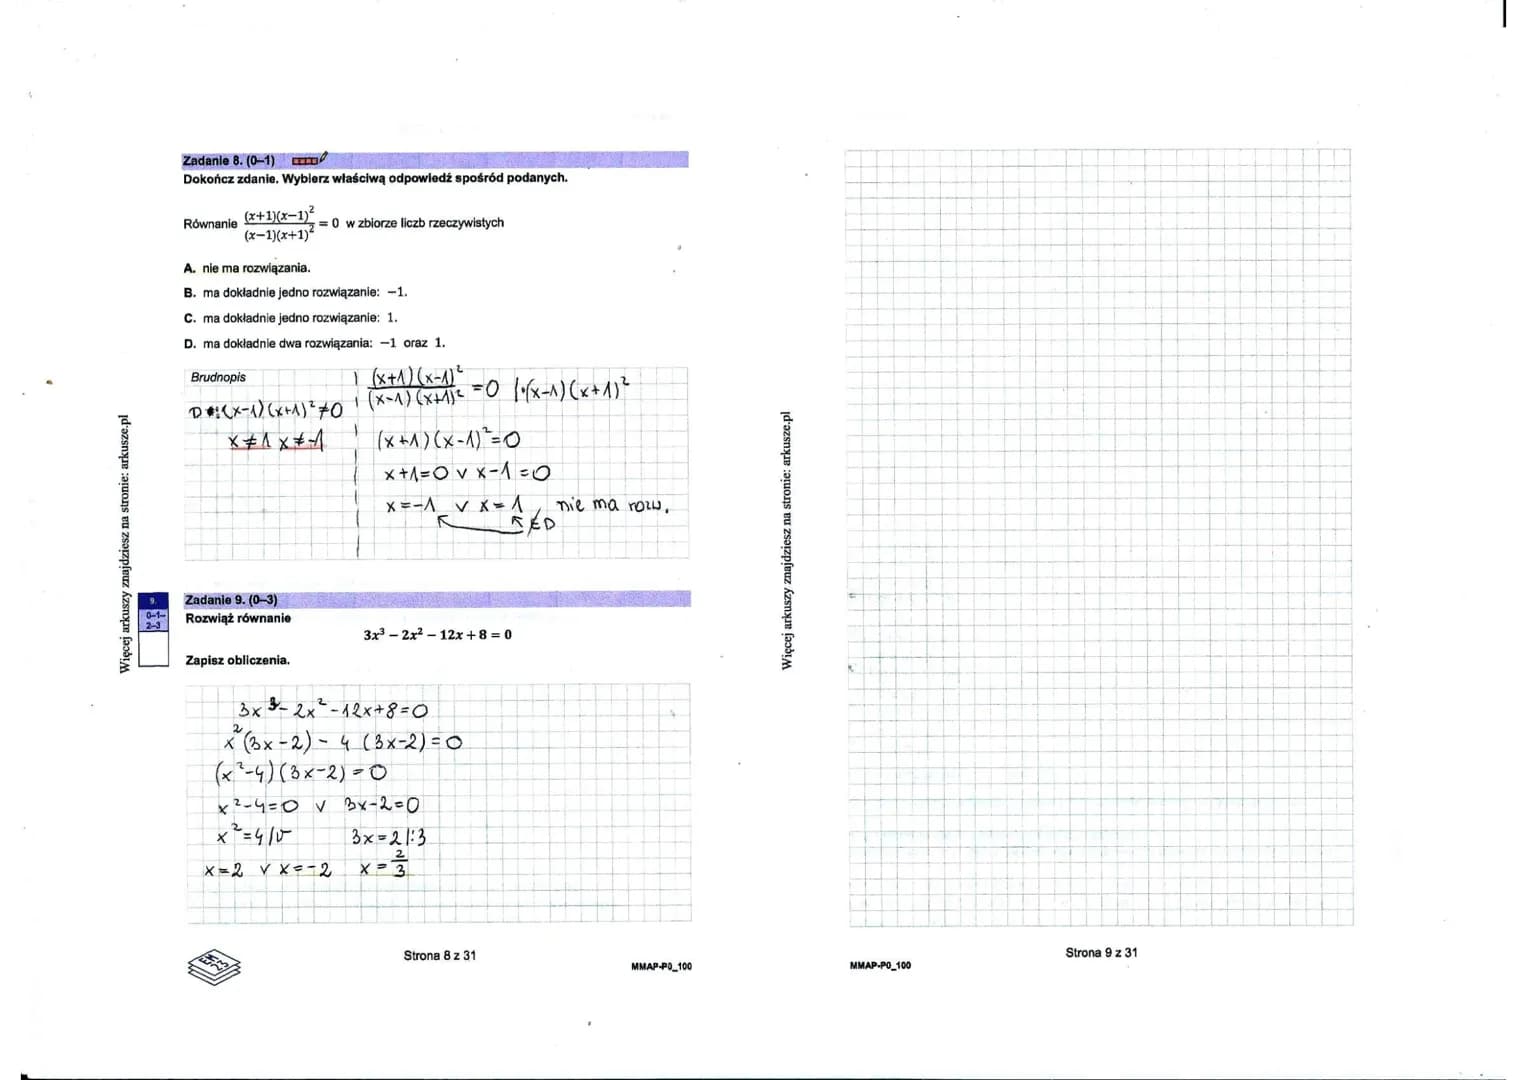 Zadanie 8. (0–1)
Dokończ zdanie. Wybierz właściwą odpowiedź spośród podanych.
Równanie (x+1)(x−1)² / (x−1)(x+1)² = 0 w zbiorze liczb rzeczywistych
A. nie ma rozwiązania.
B. ma dokładnie jedno rozwiązanie: −1.
C. ma dokładnie jedno rozwiązanie: 1.
D. ma dokładnie dwa rozwiązania: −1 oraz 1.
Brudnopis
D: (x-1)(x+1)²≠0
x≠1 x≠-1
(x+1)(x-1)² / (x-1)(x+1)² =0 |·(x-1)(x+1)²
(x+1)(x-1)²=0
x+1=0 ∨ x-1=0
x=-1 ∨ x=1, nie ma rozw.
∉D
Więcej arkuszy znajdziesz na stronie: arkusze.pl
9.
0–1–
2–3
Zadanie 9. (0–3)
Rozwiąż równanie
3x³ − 2x² − 12x + 8 = 0
Zapisz obliczenia.
3x³-2x²-12x+8=0
x²(3x-2)-4(3x-2)=0
(x²-4)(3x-2)=0
x²-4=0 ∨ 3x-2=0
x²=4/√ 3x=2|:3
x=2 ∨ x=-2 x=2/3
Strona 8 z 31
MMAP-P0_100
Więcej arkuszy znajdziesz na stronie: arkusze.pl
Strona 9 z 31
MMAP-P0_100